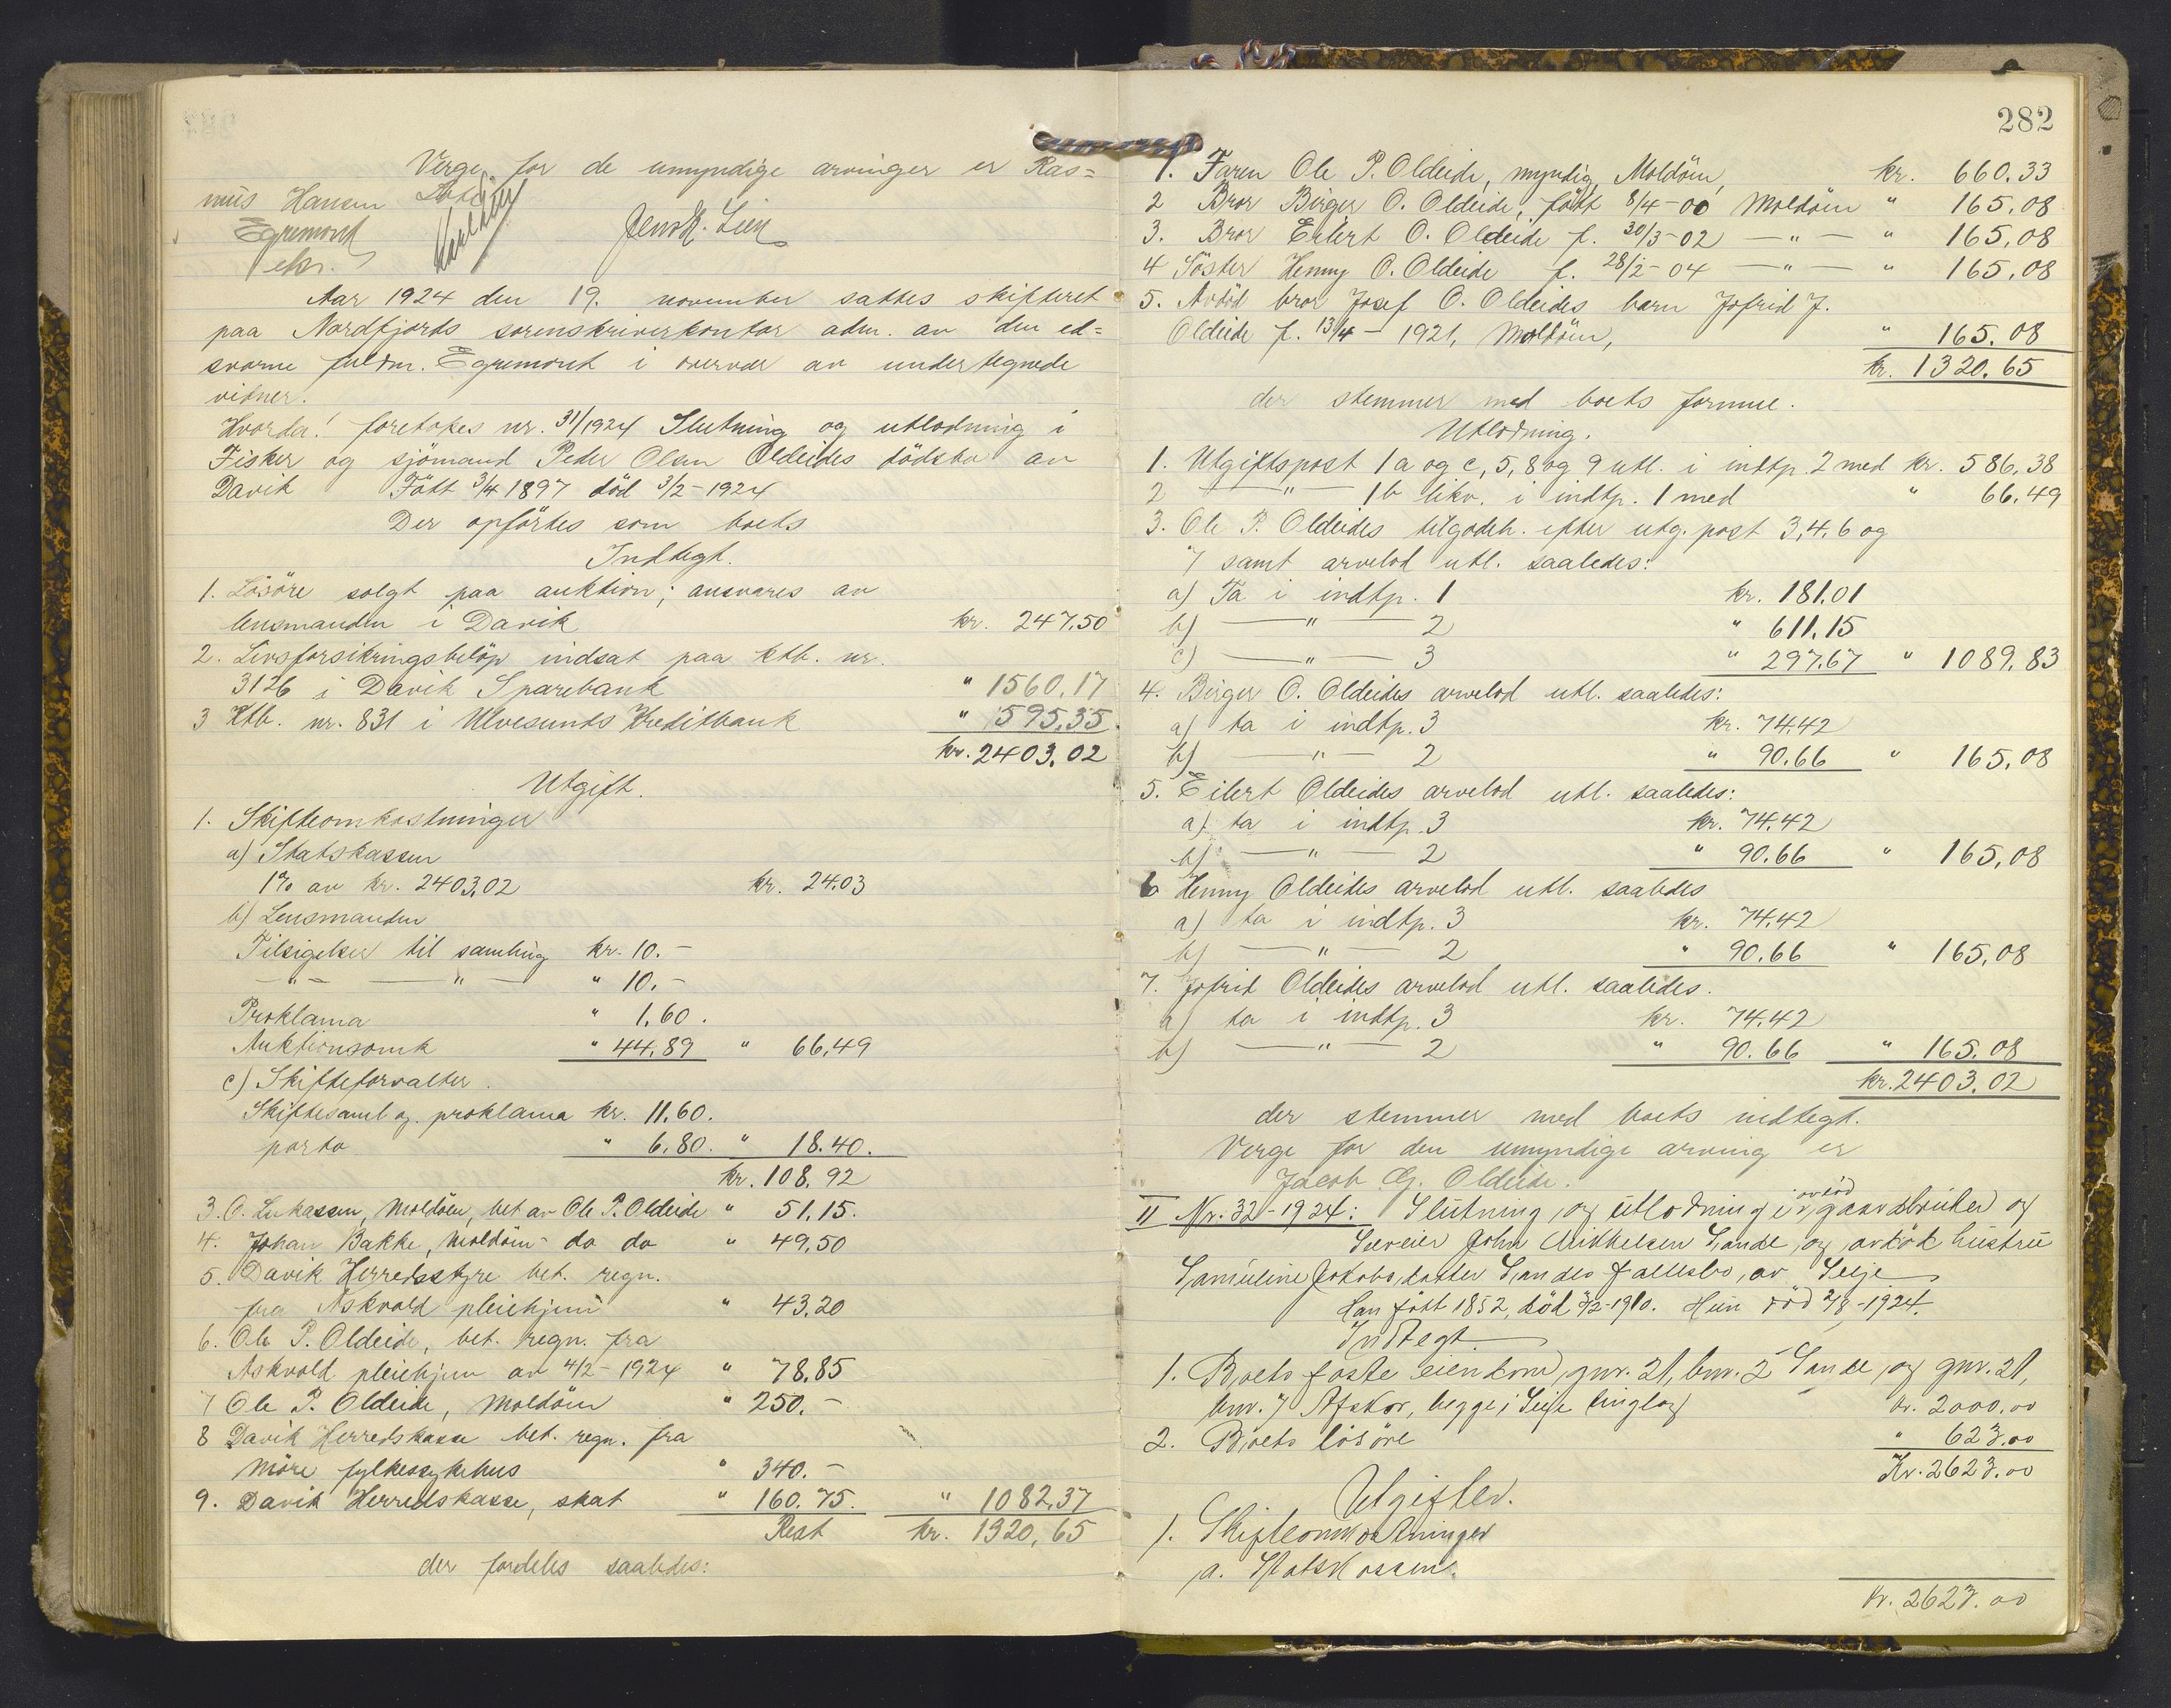 Verge for de umyndige arvinger er Ras=
mus Hansen
Egremont
Jens K. Lien
Aar 1924 den 19. november sattes skifteret
paa Nordfjords sorenskriverkontor adm. av den ed=
svorne fuldm. Egremont i overvær av undertegnede
vitner.
Hvorda! foretokes nr. 31/1924 Slutning og utlodning i
Fisker og sjömand Peder Olsen Oldeides dödsbo av
Davik Födt 3/4 1897 död 3/2-1924
Der opförtes som boets
Indtegt.
1. Lösöre solgt paa auktion; ansvares av
lensmanden i Davik kr. 247.50
2. Livsforsikringsbelöp indsat paa ktb. nr.
3126 i Davik Sparebank " 1560.17
3 Ktb. nr. 831 i Ulvesunds Kreditbank " 595.35
kr. 2403.02
Utgift.
1. Skifteomkostninger
a) Statskassen
1% av kr. 2403.02 kr. 24.03
b) Lensmanden
Tilsigelser til samling kr. 10.-
-"- -"- " 10.-
Proklama " 1.60.
Auktionsomk " 44.89 " 66.49
c) Skifteforvalter.
Skiftesaml og. proklama kr. 11.60.
porto " 6.80. " 18.40.
kr. 108.92
3. O. Lukassen, Moldöen, bet av Ole P. Oldeide " 51.15.
4. Johan Bakke, Moldöen - do do " 49.50
5. Davik Herredsstyre bet. regn.
fra Askvold pleiehjem " 43.20
6. Ole P. Oldeide, bet. regn. fra
Askvold pleiehjem av 4/2-1924 " 78.85
7 Ole P. Oldeide, Moldöen " 250.-
8 Davik Herredskasse bet. regn. fra
Möre fylkessykehus " 340.-
9. Davik Herredskasse, skat " 160.75. " 1082.37
Rest kr. 1320.65
der fordeles saaledes:
282
1. Faren Ole P. Oldeide, myndig, Moldöen, kr. 660.33
2 Bror Birger O. Oldeide, født 8/4-00 Moldöen " 165.08
3. Bror Eilert O. Oldeide f. 30/3-02 -"- " 165.08
4 Söster Henny O. Oldeide f. 28/2-04 -"- " 165.08
5. Avdöd bror Josef O. Oldeides barn Jofrid J.
Oldeide f. 13/4-1921, Moldöen, " 165.08
kr. 1320.65
der stemmer med boets formue.
Utlodning.
1. Utgiftspost 1a og c, 5, 8 og 9 utl. i indtp. 2 med kr. 586.38
2 -"- 1b likv. i indtp. 1 med " 66.49
3. Ole P. Oldeides tilgodeh. efter utg. post 3, 4, 6 og
7 samt arvelod utl. saaledes:
a) Ta i indtp. 1 kr. 181.01
b) -"- 2 " 611.15
c) -"- 3 " 297.67 " 1089.83
4. Birger O. Oldeides arvelod utl. saaledes:
a) ta i indtp. 3 kr. 74.42
b) -"- 2 " 90.66 " 165.08
5. Eilert Oldeides arvelod utl. saaledes:
a) ta i indtp. 3 kr. 74.42
b) -"- 2 " 90.66 " 165.08
6 Henny Oldeides arvelod utl. saaledes
a) ta i indtp. 3 kr. 74.42
b) -"- 2 " 90.66 " 165.08
7. Jofrid Oldeides arvelod utl. saaledes.
a) ta i indtp. 3 kr. 74.42
b) -"- 2 " 90.66 " 165.08
kr. 2403.02
der stemmer med boets indtegt.
Verge for den umyndige arving er
Jacob G. Oldeide.
II Nr. 32-1924: Slutning og utlodning i avdöd gaardbruker og
John Mikkelsen Sande og avdök hustru
Samueline Jakobsdatter Sandes fællesbo, av Selje
Han födt 1852, död 3/2-1910. Hun död 2/8-1924.
Indtegt
1. Boets faste eiendom, gnr. 21, bnr. 2 Sande og gnr. 21,
bnr. 7 Afskor, begge i Selje tinglag kr. 2000.00
2. Boets lösöre " 623.00
Kr. 2623.00
Utgifter.
1. Skifteomkostninger
a. Statskassen.
kr. 2623.00